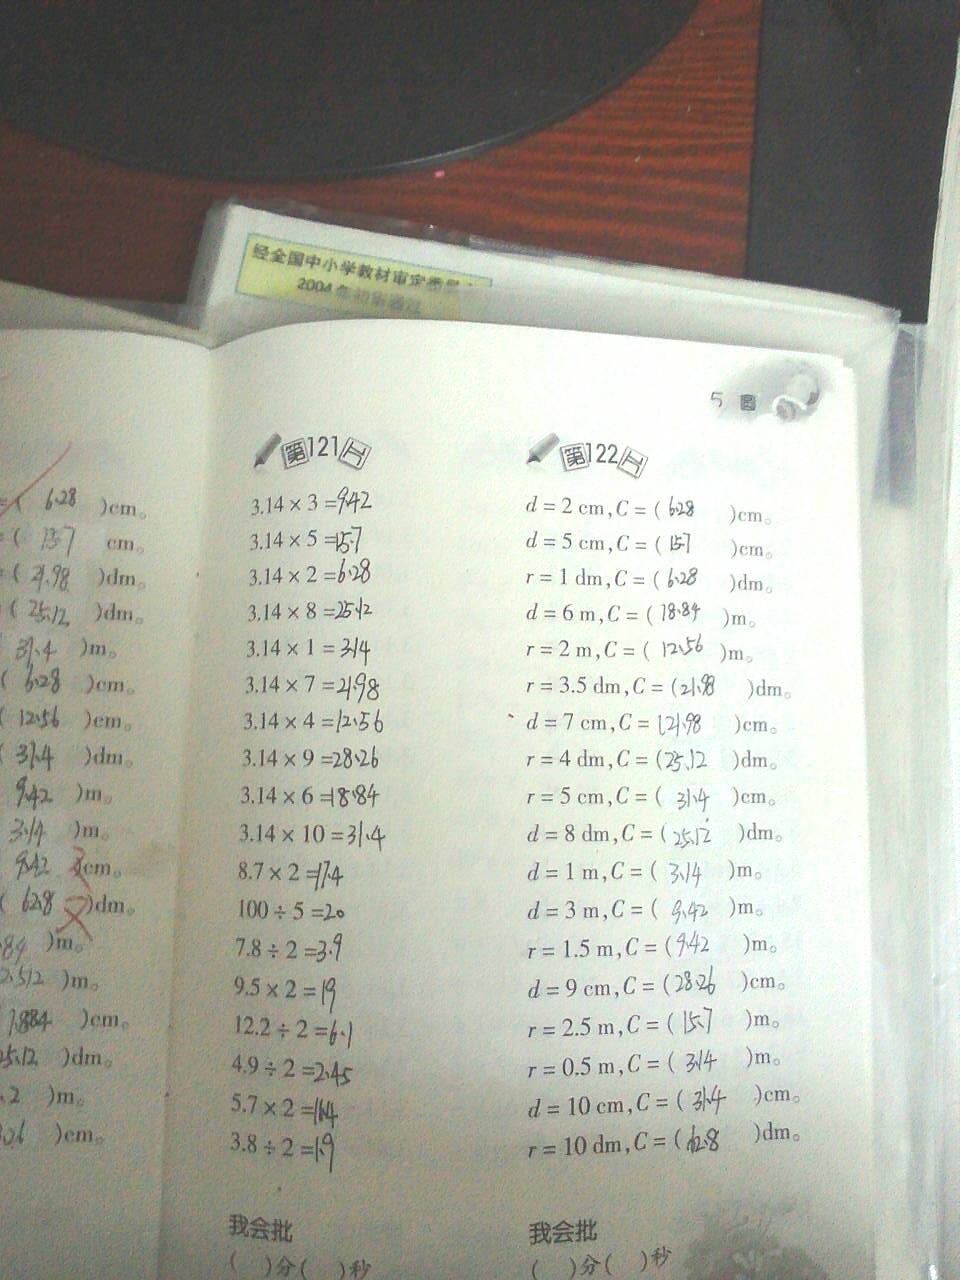 经全国中小学教材审定委员会
2004年初审通过
5 圆
=( 6.28 )cm。
=( 15.7 cm。
=( 21.98 )dm。
( 25.12 )dm。
31.4 )m。
( 6.28 )cm。
( 12.56 )cm。
( 31.4 )dm。
9.42 )m。
3.14 )m。
9.42 )cm。
( 62.8 )dm。
)m。
)m。
)cm。
25.12 )dm。
)m。
)cm。
第121工
3.14 × 3 =9.42
3.14 × 5 =15.7
3.14 × 2 =6.28
3.14 × 8 =25.12
3.14 × 1 = 3.14
3.14 × 7 =21.98
3.14 × 4 =12.56
3.14 × 9 =28.26
3.14 × 6 =18.84
3.14 × 10 =31.4
8.7 × 2 =17.4
100 ÷ 5 =20
7.8 ÷ 2 =3.9
9.5 × 2 =19
12.2 ÷ 2 =6.1
4.9 ÷ 2 =2.45
5.7 × 2 =11.4
3.8 ÷ 2 =1.9
我会批
( )分( )秒
第122工
d = 2 cm,C = ( 6.28 )cm。
d = 5 cm,C = ( 15.7 )cm。
r = 1 dm,C = ( 6.28 )dm。
d = 6 m,C = ( 18.84 )m。
r = 2 m,C = ( 12.56 )m。
r = 3.5 dm,C = (21.98 )dm。
d = 7 cm,C = (21.98 )cm。
r = 4 dm,C = (25.12 )dm。
r = 5 cm,C = ( 31.4 )cm。
d = 8 dm,C = ( 25.12 )dm。
d = 1 m,C = ( 3.14 )m。
d = 3 m,C = ( 9.42 )m。
r = 1.5 m,C = (9.42 )m。
d = 9 cm,C = (28.26 )cm。
r = 2.5 m,C = ( 15.7 )m。
r = 0.5 m,C = ( 3.14 )m。
d = 10 cm,C = ( 31.4 )cm。
r = 10 dm,C = ( 62.8 )dm。
我会批
( )分( )秒